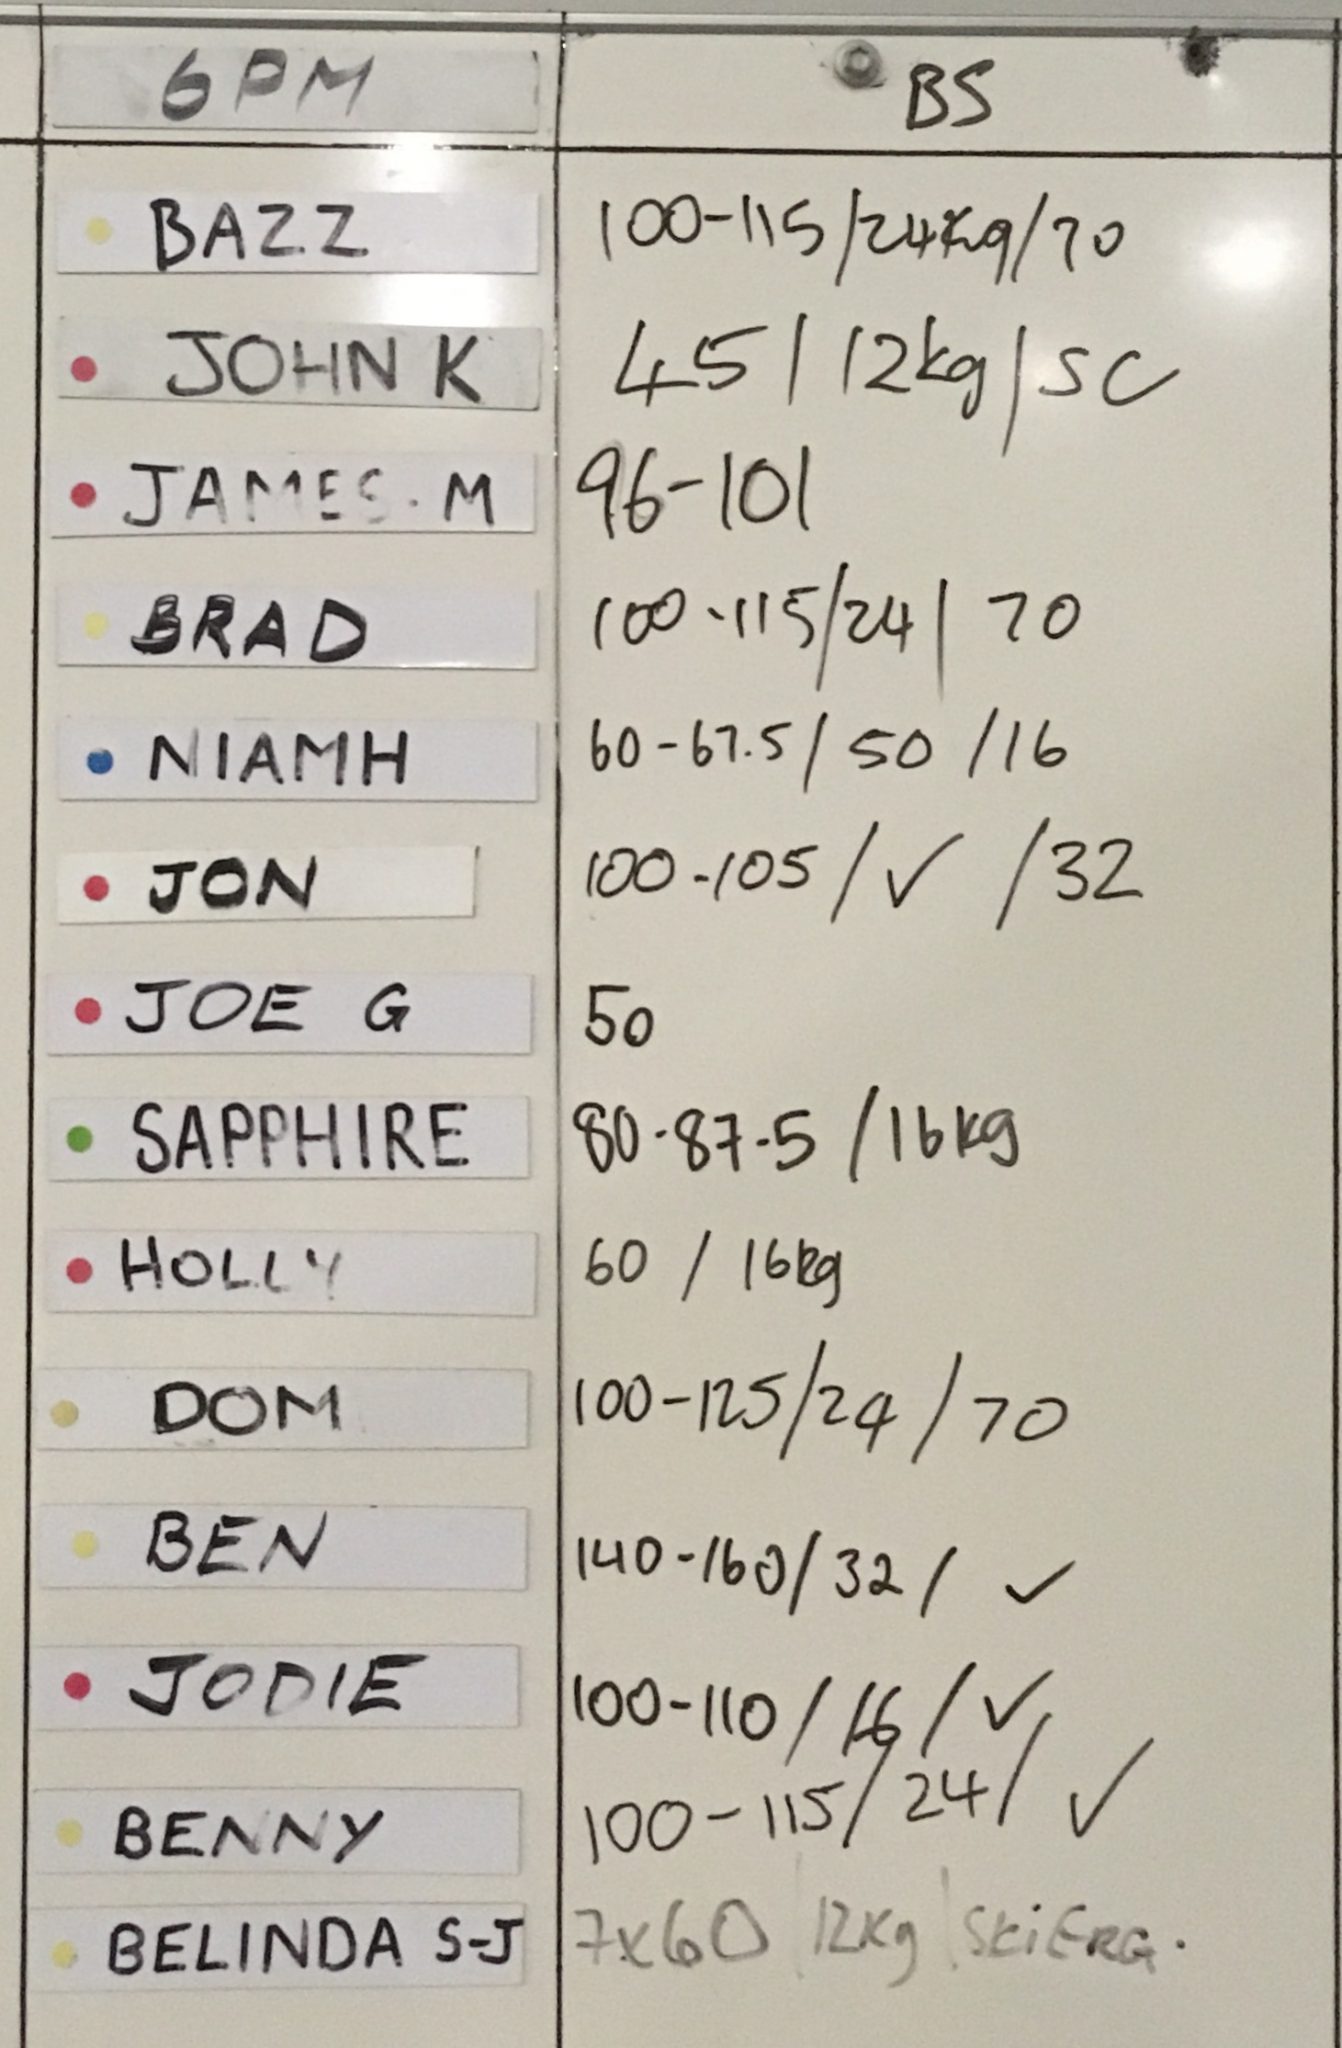 6PM BS
BAZZ 100-115/24kg/70
JOHN K 45/12kg/SC
JAMES.M 96-101
BRAD 100-115/24/70
NIAMH 60-67.5/50/16
JON 100-105/✓/32
JOE G 50
SAPPHIRE 80-87.5/16kg
HOLLY 60/16kg
DOM 100-125/24/70
BEN 140-160/32/✓
JODIE 100-110/16/✓
BENNY 100-115/24/✓
BELINDA S-J 7x60/12kg/SKiERG.